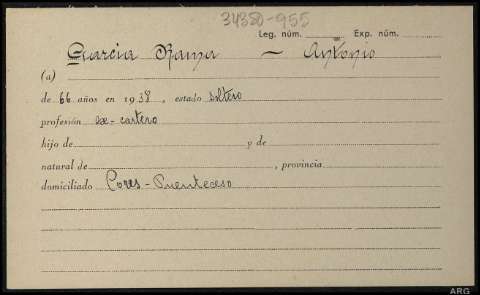 34380-955
Leg. núm. Exp. núm.
Garcia Rama - Antonio
(a)
de 66 años en 1938, estado soltero
profesión ex-cartero
hijo de y de
natural de , provincia
domiciliado Cores-Puenteceso
ARG